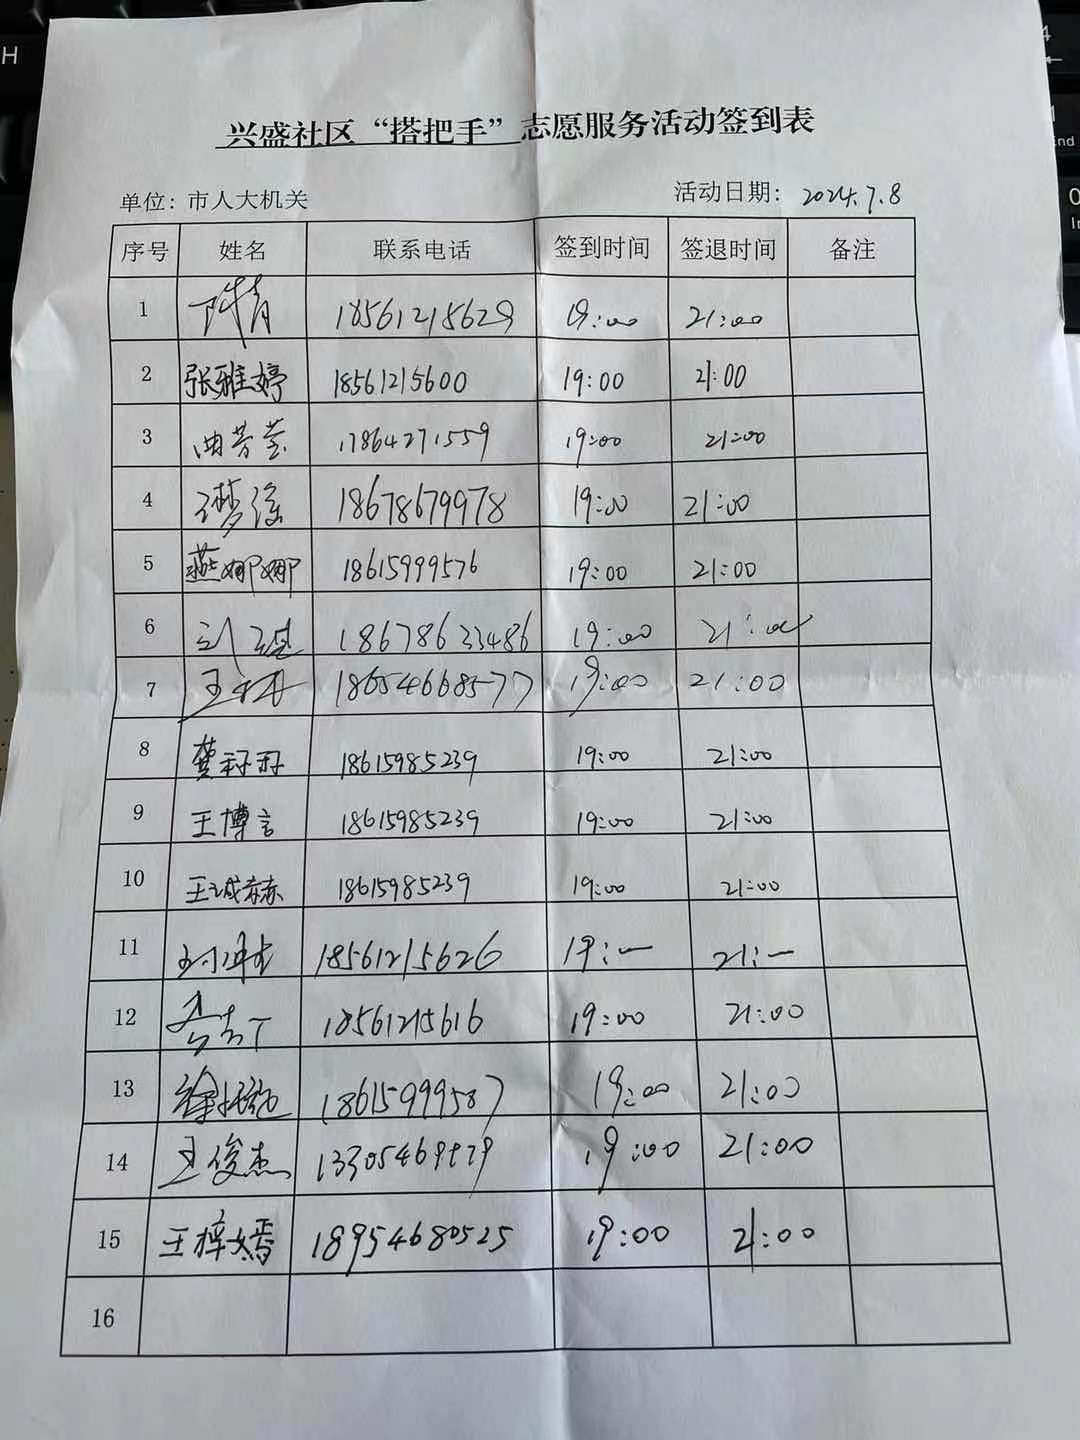 兴盛社区“搭把手”志愿服务活动签到表
单位：市人大机关 活动日期：2024.7.8
序号 姓名 联系电话 签到时间 签退时间 备注
1 18561215629 19:00 21:00
2 张雅婷 18561215600 19:00 21:00
3 曲芳莹 17864271559 19:00 21:00
4 18678679978 19:00 21:00
5 燕娜娜 18615999576 19:00 21:00
6 18678633486 19:00 21:00
7 18654668577 19:00 21:00
8 龚 18615985239 19:00 21:00
9 王博言 18615985239 19:00 21:00
10 王诚赫 18615985239 19:00 21:00
11 18561215626 19:— 21:—
12 18561215616 19:00 21:00
13 徐 18615999587 19:00 21:00
14 王俊杰 19:00 21:00
15 王梓嫣 18954680525 19:00 21:00
16